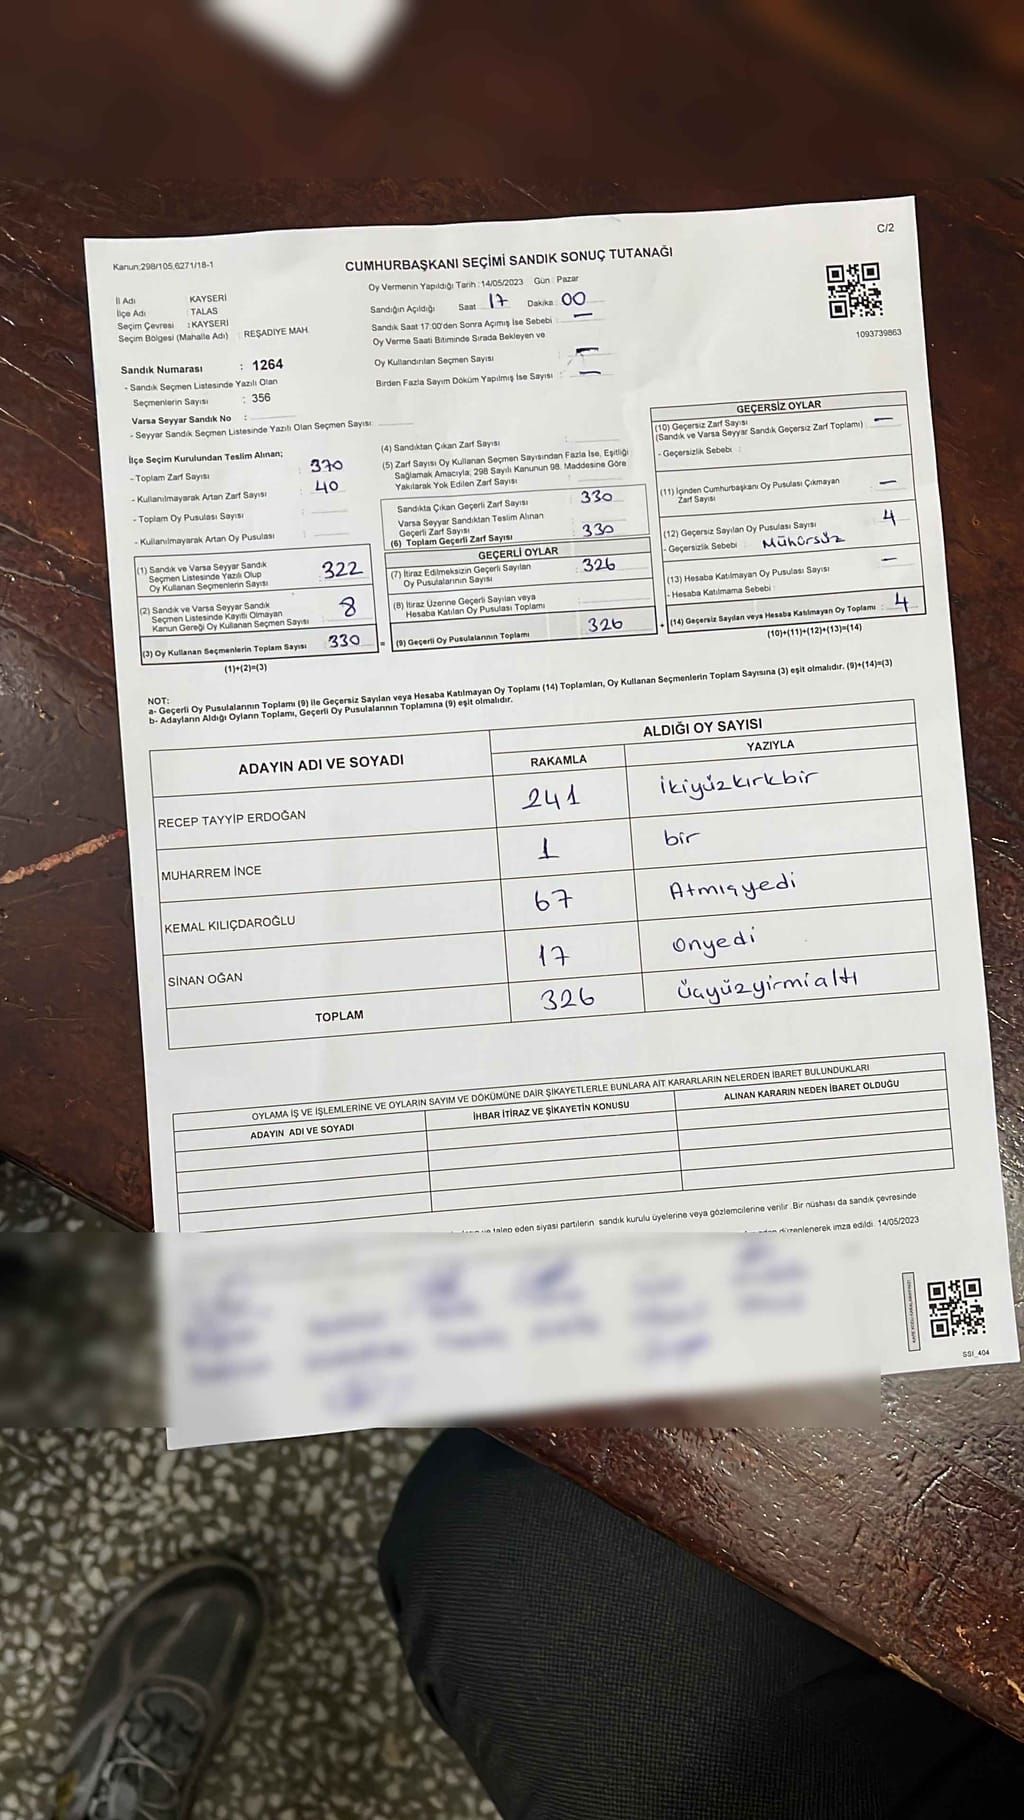 C/2
Kanun;298/105,6271/18-1
CUMHURBAŞKANI SEÇİMİ SANDIK SONUÇ TUTANAĞI
Oy Vermenin Yapıldığı Tarih :14/05/2023 Gün : Pazar
İl Adı : KAYSERİ
İlçe Adı : TALAS
Seçim Çevresi : KAYSERİ
Seçim Bölgesi (Mahalle Adı) : REŞADİYE MAH.
Sandığın Açıldığı Saat : 17 Dakika : 00
Sandık Saat 17:00'den Sonra Açımış İse Sebebi : —
Oy Verme Saati Bitiminde Sırada Bekleyen ve
Oy Kullandırılan Seçmen Sayısı : —
Birden Fazla Sayım Döküm Yapılmış İse Sayısı : —
1093739863
Sandık Numarası : 1264
- Sandık Seçmen Listesinde Yazılı Olan
Seçmenlerin Sayısı : 356
Varsa Seyyar Sandık No :
- Seyyar Sandık Seçmen Listesinde Yazılı Olan Seçmen Sayısı:
İlçe Seçim Kurulundan Teslim Alınan;
- Toplam Zarf Sayısı : 370
- Kullanılmayarak Artan Zarf Sayısı : 40
- Toplam Oy Pusulası Sayısı :
- Kullanılmayarak Artan Oy Pusulası :
(1) Sandık ve Varsa Seyyar Sandık
Seçmen Listesinde Yazılı Olup
Oy Kullanan Seçmenlerin Sayısı : 322
(2) Sandık ve Varsa Seyyar Sandık
Seçmen Listesinde Kayıtlı Olmayan
Kanun Gereği Oy Kullanan Seçmen Sayısı : 8
(3) Oy Kullanan Seçmenlerin Toplam Sayısı : 330 =
(1)+(2)=(3)
(4) Sandıktan Çıkan Zarf Sayısı :
(5) Zarf Sayısı Oy Kullanan Seçmen Sayısından Fazla İse, Eşitliği
Sağlamak Amacıyla; 298 Sayılı Kanunun 98. Maddesine Göre
Yakılarak Yok Edilen Zarf Sayısı :
Sandıkta Çıkan Geçerli Zarf Sayısı : 330
Varsa Seyyar Sandıktan Teslim Alınan
Geçerli Zarf Sayısı :
(6) Toplam Geçerli Zarf Sayısı : 330
GEÇERLİ OYLAR
(7) İtiraz Edilmeksizin Geçerli Sayılan
Oy Pusulalarının Sayısı : 326
(8) İtiraz Üzerine Geçerli Sayılan veya
Hesaba Katılan Oy Pusulası Toplamı :
(9) Geçerli Oy Pusulalarının Toplamı : 326 +
GEÇERSİZ OYLAR
(10) Geçersiz Zarf Sayısı
(Sandık ve Varsa Seyyar Sandık Geçersiz Zarf Toplamı) : —
- Geçersizlik Sebebi :
(11) İçinden Cumhurbaşkanı Oy Pusulası Çıkmayan
Zarf Sayısı : —
(12) Geçersiz Sayılan Oy Pusulası Sayısı : 4
- Geçersizlik Sebebi : Mühürsüz
(13) Hesaba Katılmayan Oy Pusulası Sayısı : —
- Hesaba Katılmama Sebebi :
(14) Geçersiz Sayılan veya Hesaba Katılmayan Oy Toplamı : 4
(10)+(11)+(12)+(13)=(14)
NOT:
a- Geçerli Oy Pusulalarının Toplamı (9) ile Geçersiz Sayılan veya Hesaba Katılmayan Oy Toplamı (14) Toplamları, Oy Kullanan Seçmenlerin Toplam Sayısına (3) eşit olmalıdır. (9)+(14)=(3)
b- Adayların Aldığı Oyların Toplamı, Geçerli Oy Pusulalarının Toplamına (9) eşit olmalıdır.
ADAYIN ADI VE SOYADI
ALDIĞI OY SAYISI
RAKAMLA YAZIYLA
RECEP TAYYİP ERDOĞAN 241 ikiyüzkırkbir
MUHARREM İNCE 1 bir
KEMAL KILIÇDAROĞLU 67 Atmışyedi
SİNAN OĞAN 17 Onyedi
TOPLAM 326 üçyüzyirmialtı
OYLAMA İŞ VE İŞLEMLERİNE VE OYLARIN SAYIM VE DÖKÜMÜNE DAİR ŞİKAYETLERLE BUNLARA AİT KARARLARIN NELERDEN İBARET BULUNDUKLARI
ADAYIN ADI VE SOYADI İHBAR İTİRAZ VE ŞİKAYETİN KONUSU ALINAN KARARIN NEDEN İBARET OLDUĞU
talep eden siyasi partilerin sandık kurulu üyelerine veya gözlemcilerine verilir .Bir nüshası da sandık çevresinde
düzenlenerek imza edildi. 14/05/2023
SSI_404